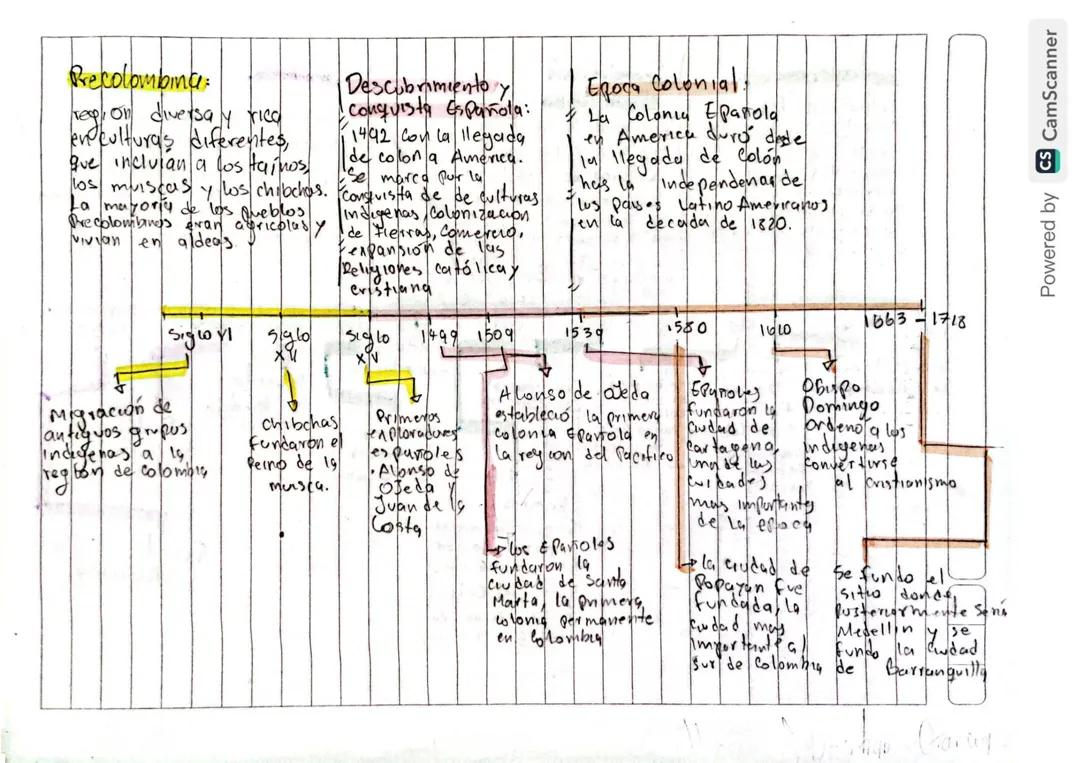 Precolombina:
región diversa y rica
en culturas diferentes,
que incluían a los taínos,
los muiscas y los chibchas.
La mayoría de los pueblos
Precolombinos eran agrícolas y
vivían en aldeas
Descubrimiento y
conquista Española:
1492 con la llegada
de colon a América.
Se marca por la
conquista de de culturas
indigenas, colonización
de tierras, comercio,
expansión de las
Religiones católica y
cristiana
Epoca Colonial:
La Colonia Española
en America duró desde
la llegada de Colón
has la independenas de
los paises Latino Americanos
en la decada de 1820.
Siglo VI
Siglo
XII
Siglo
XV
1499
1509
1539
1580
1610
1663 - 1718
Migración de
antiguos grupos
indigenas a la
region de colombia
Chibchas
Fundaron el
Reino de la
muisca.
Primeros
exploradores
españoles
. Alonso de
Ojeda y
Juan de la
Costa
Alonso de Ojeda
estableció la primera
colonia Española en
la region del Pacifico
los Españoles
fundaron la
ciudad de Santa
Marta, la primera
colonia permanente
en Colombia
Españoles
fundaron la
ciudad de
cartagena,
una de las
cuidades
mas importantes
de la epoca
la ciudad de
Popayan fue
fundada, la
ciudad mas
importante al
sur de Colombia
Obispo
Domingo
Ordenó a los
indigenas
convertirse
al cristianismo
Se fundo el
sitio donde
Posteriormente seria
Medellin y se
fundo la ciudad
de Barranquilla
Powered by CS CamScanner